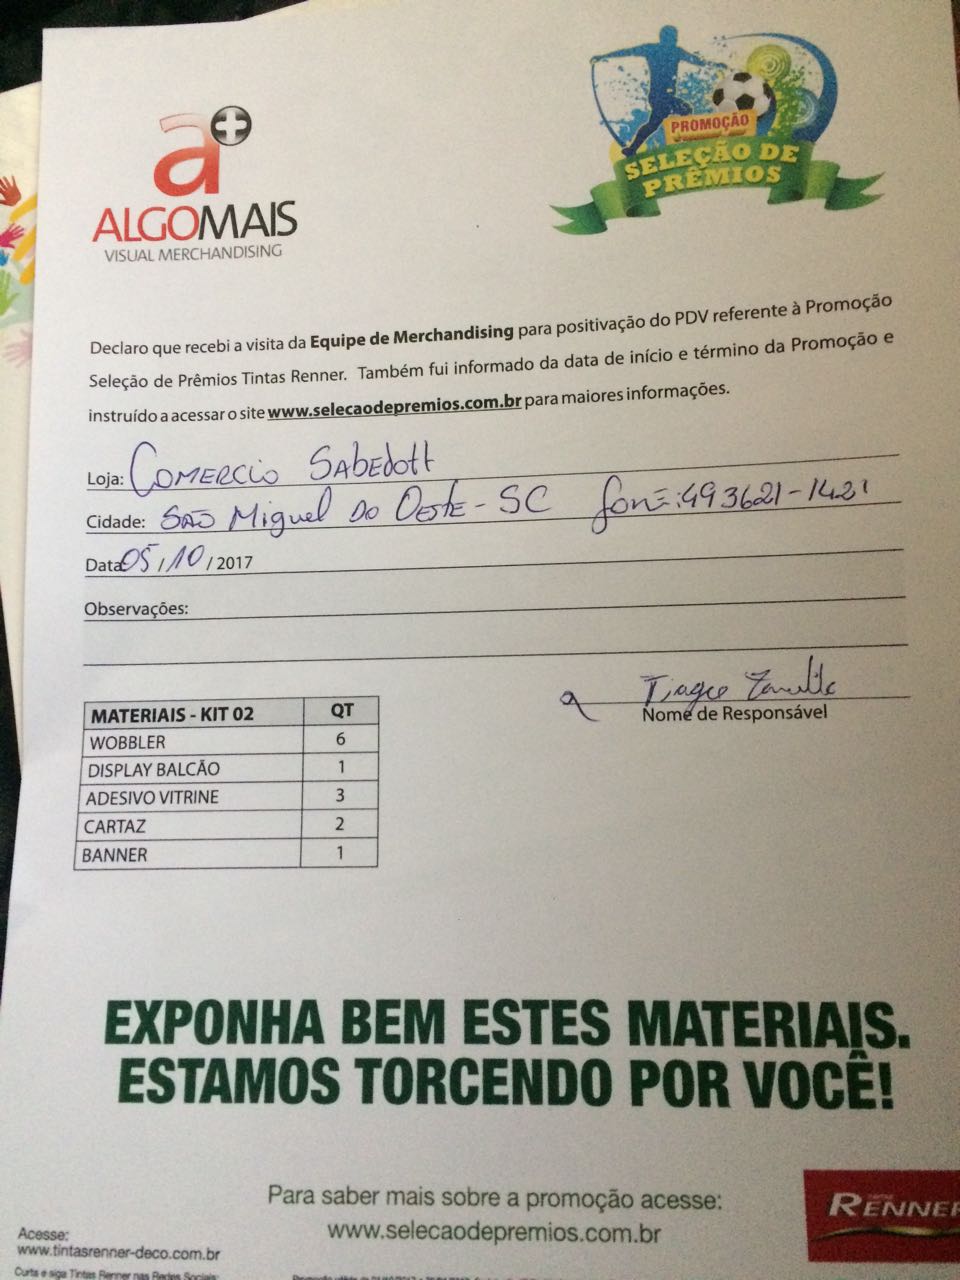 a+
ALGOMAIS
VISUAL MERCHANDISING
PROMOÇÃO
SELEÇÃO DE
PRÊMIOS
Declaro que recebi a visita da Equipe de Merchandising para positivação do PDV referente à Promoção
Seleção de Prêmios Tintas Renner. Também fui informado da data de início e término da Promoção e
instruído a acessar o site www.selecaodepremios.com.br para maiores informações.
Loja: COMERCIO SABEDOTT
Cidade: SÃO MIGUEL DO OESTE - SC fone: 49 3621-1421
Data: 05/10/2017
Observações:
Tiago
Nome de Responsável
MATERIAIS - KIT 02 QT
WOBBLER 6
DISPLAY BALCÃO 1
ADESIVO VITRINE 3
CARTAZ 2
BANNER 1
EXPONHA BEM ESTES MATERIAIS.
ESTAMOS TORCENDO POR VOCÊ!
Para saber mais sobre a promoção acesse:
www.selecaodepremios.com.br
RENNER
Acesse:
www.tintasrenner-deco.com.br
Curta e siga Tintas Renner nas Redes Sociais: